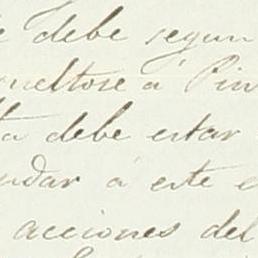 e debe segun
ueltose á Pin
ta debe estar
ndar á este e
acciones del